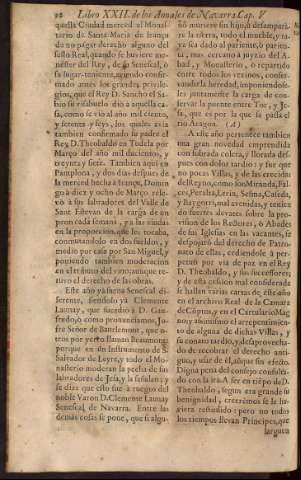 28 Libro XXII. de los Annales de Navarra Cap. V
quella Ciudad merced al Monas-
terio de Santa Maria de Iranzu
de no pagar derecho alguno del
sello Real, quando se huviere me-
nester del Rey, de su Senescal, ò
su lugar-teniente, aviendo confir-
mado antes los grandes privile-
gios, que el Rey D. Sancho el Sa-
bio su visabuelo diò a aquella ca-
sa, como se viò al año mil ciento,
y setenta y seys, los quales avia
tambien confirmado su padre el
Rey D. Theobaldo en Tudela por
Março del año mil ducientos, y
treynta y siete. Tambien aqui en
Pamplona, y dos dias despues de
la merced hecha à Iranzu, Domin
go à diez y ocho de Março rele-
vò à sus labradores del Valle de
Sant Estevan de la carga de un
peon cada semana, y a las viudas
en la proporcion, que les tocaba,
conmutandolo en dos sueldos, y
medio por casa por San Miguel, y
poniendo tambien moderacion
en el tributo del vino, aunque re-
tuvo el derecho de las obras.
Este año ya suena Senescal di-
ferente, siendolo ya Clemente
Launay, que sucediò a D. Gau-
fredo, ò como pronunciamos, Jo-
fre Señor de Bantelemont, que o-
tros por yerro llaman Beaumont:
porque en un Instrumento de S.
Salvador de Leyre, y todo el Mo-
nasterio moderan la pecha de sus
labradores de Jesa, y la señalan: y
se dice que esto fuè à ruegos del
noble Varon D. Clemente Launay
Senescal de Navarra. Entre las
demàs cosas se pone, que si algu-
no muriere sin hijo, ò desampara-
re la tierra, todo el mueble, y ra-
yz sea dado al pariente, ò parien-
ta, mas cercano a juyzio del A-
bad, y Monasterio, o repartido
corre todos los vezinos, conser-
vandoria heredad, imponiendo-
les juntamente la carga de con-
servar la puente entre Yec, y Je-
sa, que es por la que se passa el
rio Aragon. (A)
A este año pertenece tambien
una gran novedad emprendida
con sobrada colera, y llorada des-
pues con dolor tardio: y fue que
no pocas Villas, y de las crecidas
del Reyno, como son Miranda, Fal-
ces, Peralta, Lerin, Sesma, Caseda,
y Baygorri, mal avenidas, y tenidos
de fueros devates sobre la pro-
vision de los Rectores, ò Abades
de sus Iglesias en las vacantes, se
despojarò del derecho de Patro-
nato de ellas, cediendole à per-
petuo por via de paz en el Rey
D. Theobaldo, y sus successores;
y de esta cession mal considerada
se hallan varias cartas de este año
en el archivo Real de la Camara
de Còptos, y en el Cartulario Mag-
no y assimismo el arrepentimien-
to de alguna de dichas Villas, y
su conato tardio, y desaprovecha-
do de recobrar el derecho anti-
guo, y usar de èl, aùque sin efecto.
Digna pena del consejo consulta-
do con la ira. A ser en tièpo de D.
Theobaldo, segun era grande su
benignidad, creerèmos se le hu-
viera restituido: pero no todo
los tiempos llevan Principes, que
largura